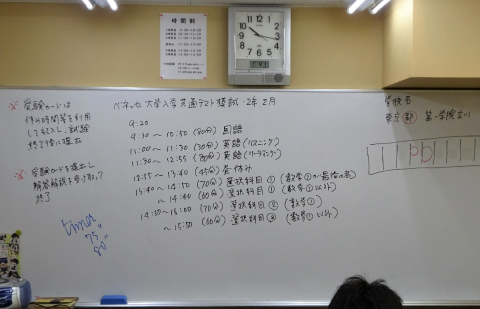 時間割
※ 受験カードは
休み時間等を利用
して記入し、試験
終了後に提出
※ 受験カードを提出し
解答解説を受け取って
終了
timer
75"
80"
ベネッセ 大学入学共通テスト模試・2年 2月
9:20
9:30 ～ 10:50 (80分) 国語
11:00 ～ 11:30 (30分) 英語 (リスニング)
11:30 ～ 12:55 (80分) 英語 (リーディング)
12:55 ～ 13:40 (45分) 昼休み
13:40 ～ 14:50 (70分) 選択科目① (数学①
～ 14:40 (60分) 選択科目① (数学①以外)
14:50 ～ 16:00 (70分) 選択科目② (数学①)
～ 15:50 (60分) 選択科目② (数学①以外)
学校名
東京 都 第一学院立川